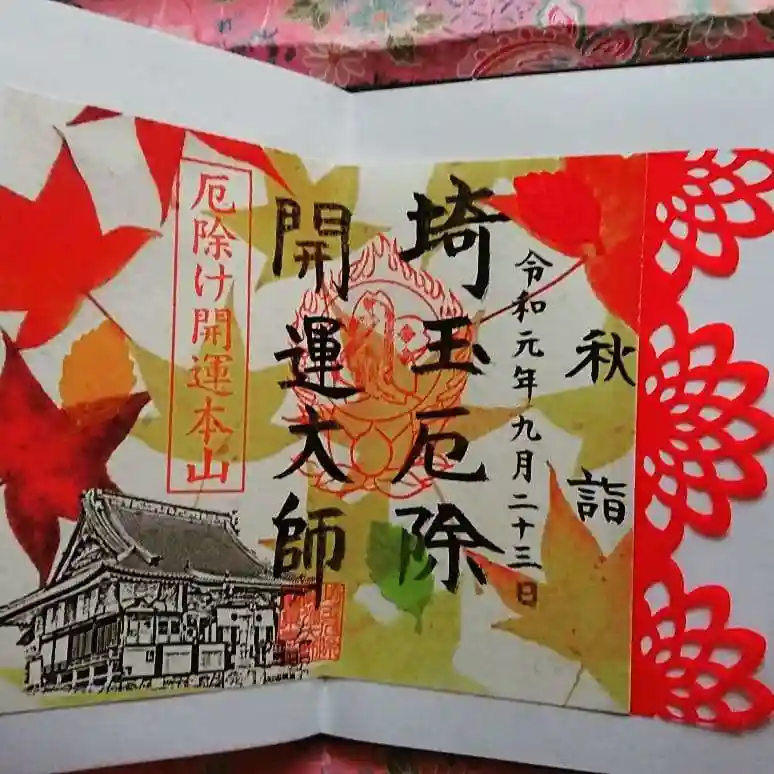 秋詣
令和元年九月二十三日
埼玉厄除
開運大師
厄除け開運本山